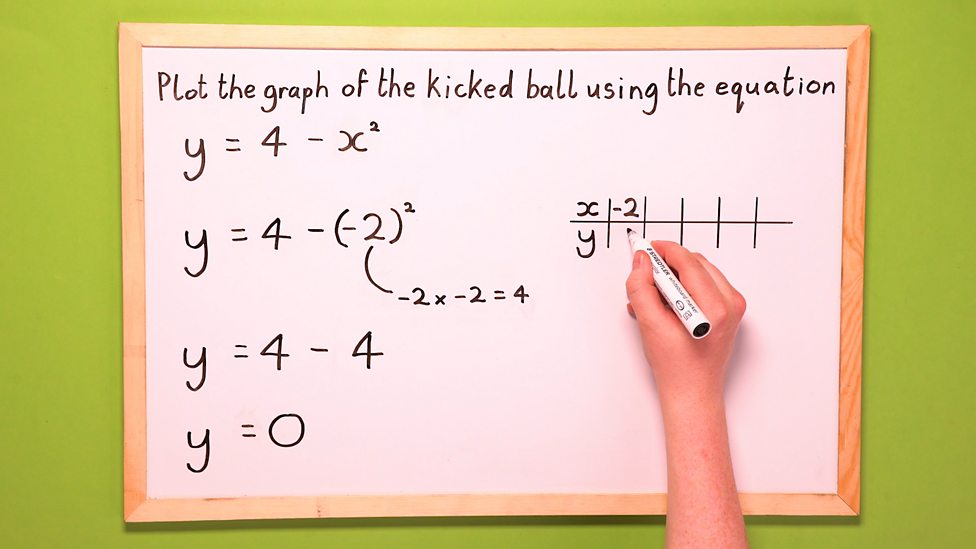 Plot the graph of the kicked ball using the equation
y = 4 - x²
y = 4 - (-2)²
-2 x -2 = 4
y = 4 - 4
y = 0
x -2
y
STAEDTLER